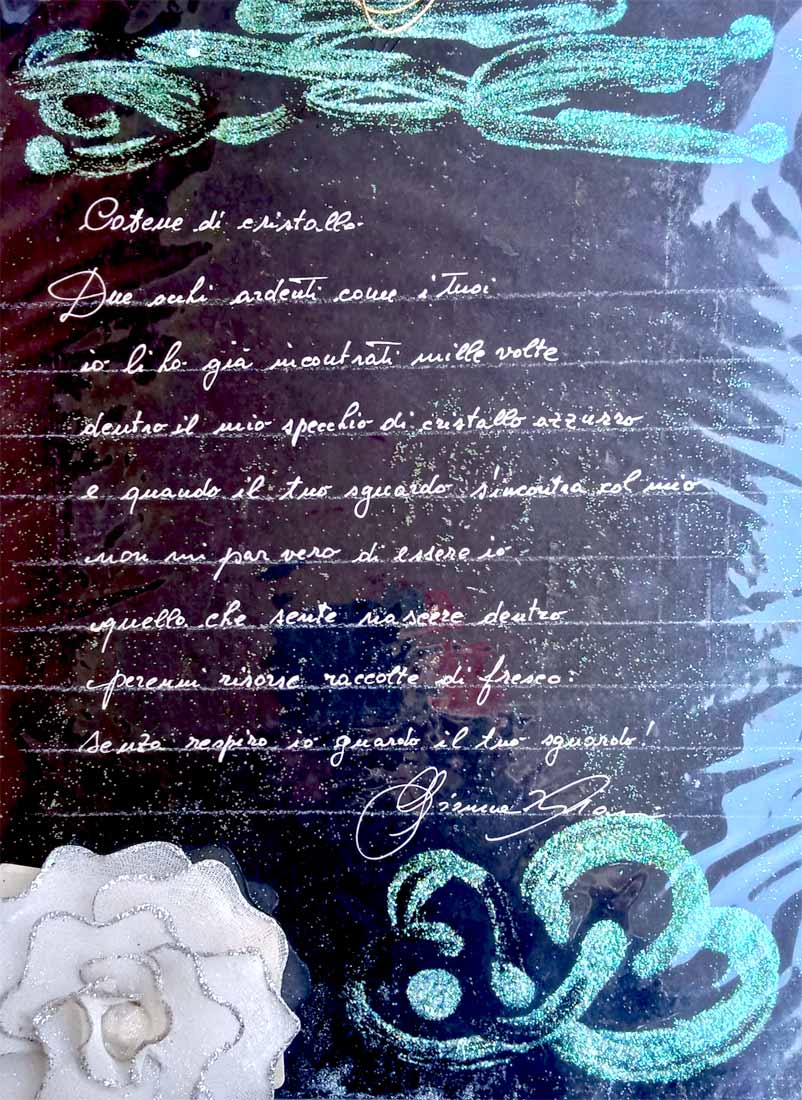 Catene di cristallo
Due occhi ardenti come i tuoi
io li ho già incontrati mille volte
dentro il mio specchio di cristallo azzurro
e quando il tuo sguardo s'incontra col mio
non mi par vero di essere io
quello che sente nascere dentro
perenni risorse raccolte di fresco:
senza respiro io guardo il tuo sguardo!